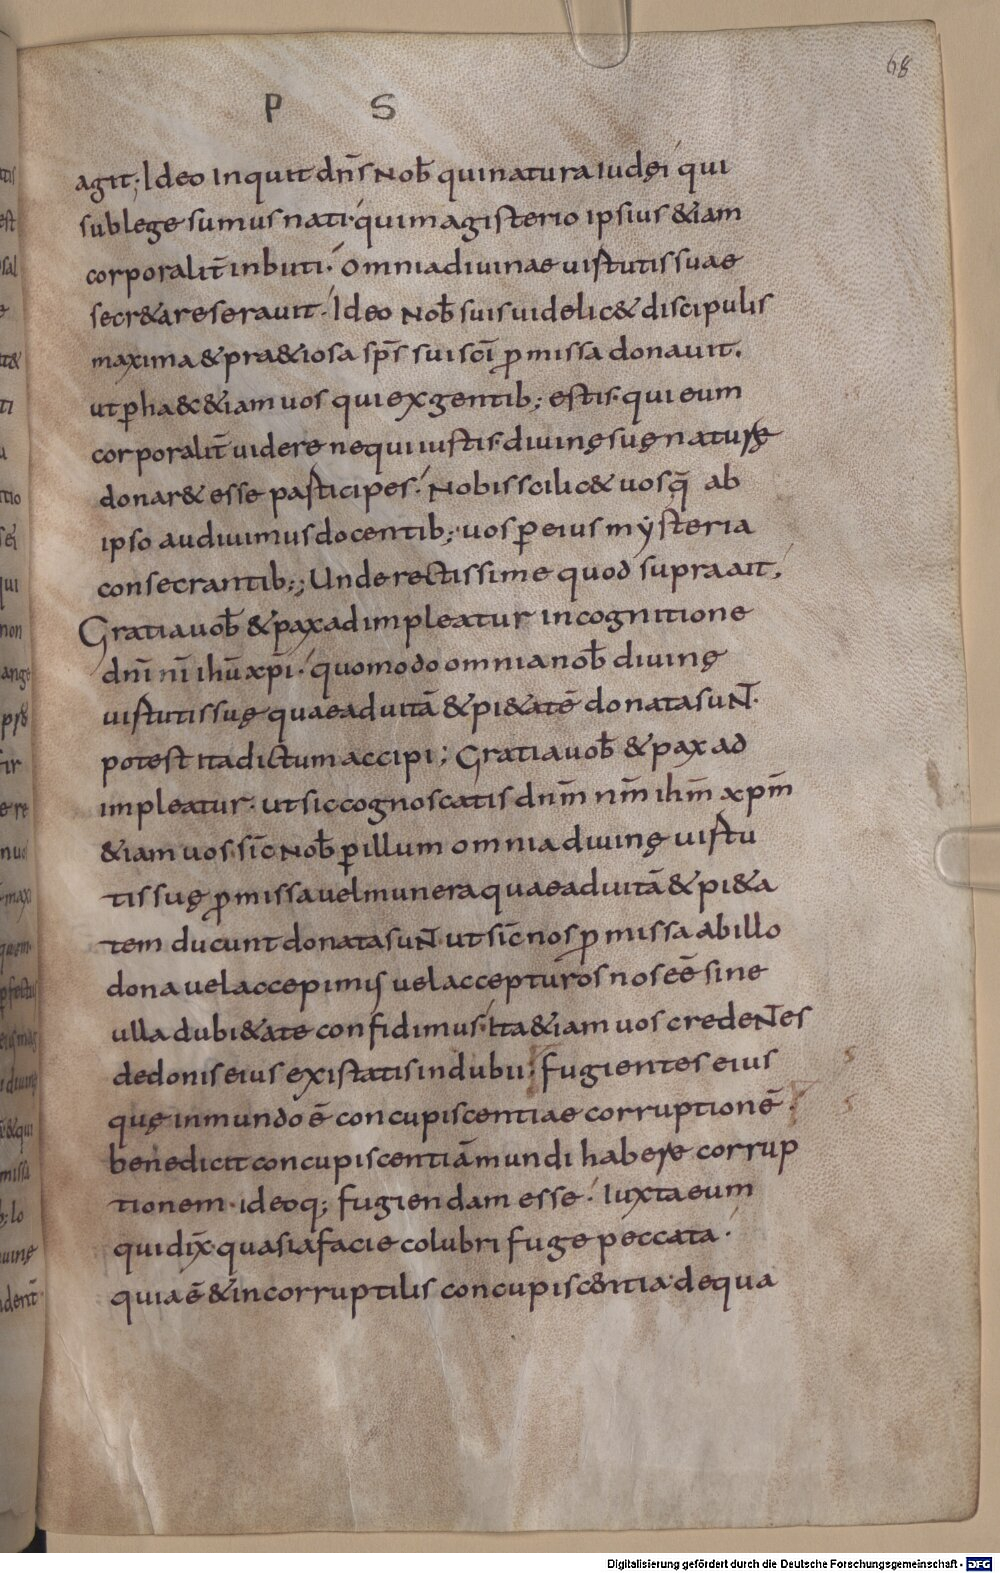 68
P S
agit; Ideo inquit dn̄s nob̄ qui natura iudęi qui
sub lege sumus nati qui magisterio ipsius &iam
corporalit̄ inbuti. omnia divinae virtutis suae
secr&a reseravit. Ideo nob̄ suis videlic& discipulis
maxima & pr&iosa sp̄s sui sc̄i p̄missa donavit.
ut p̱ ha&c &iam vos qui ex gentib; estis. qui eum
corporalit̄ videre nequivistis. divinę suę naturę
donar& esse participes. Nobis scilic& vosq̄ ab
ipso audivimus docentib; vos p̱ eius mẏsteria
consecrantib;; Unde rectissime quod supra ait,
Gratia vob̄ & pax adimpleatur in cognitione
dn̄i nī ihū xp̄i. quomodo omnia nob̄ divinę
virtutis suę quae ad vitā & pi&atē donata suN̄.
potest ita dictum accipi; Gratia vob̄ & pax ad
impleatur. ut sic cognoscatis dn̄m nm̄ ihm̄ xpm̄
&iam vos. sic̄ nob̄ p̱ illum omnia divinę virtu
tis suę p̄missa vel munera quae ad vitā & pi&a
tem ducunt donata suN̄ ut sic̄ nos p̄missa ab illo
dona vel accepimus vel accepturos nos eē sine
ulla dubi&ate confidimus. Ita &iam vos credeN̄es
de donis eius existatis indubii. fugientes eius
quę in mundo ē concupiscentiae corruptionē.
benedicit concupiscentiā mundi habere corrup
tionem. ideoq; fugiendam esse. Iuxta eum
qui dix̄. quasi a facie colubri fuge peccata.
quia ē & incorruptilis concupiscentia. de qua
s
s
Digitalisierung gefördert durch die Deutsche Forschungsgemeinschaft - DFG